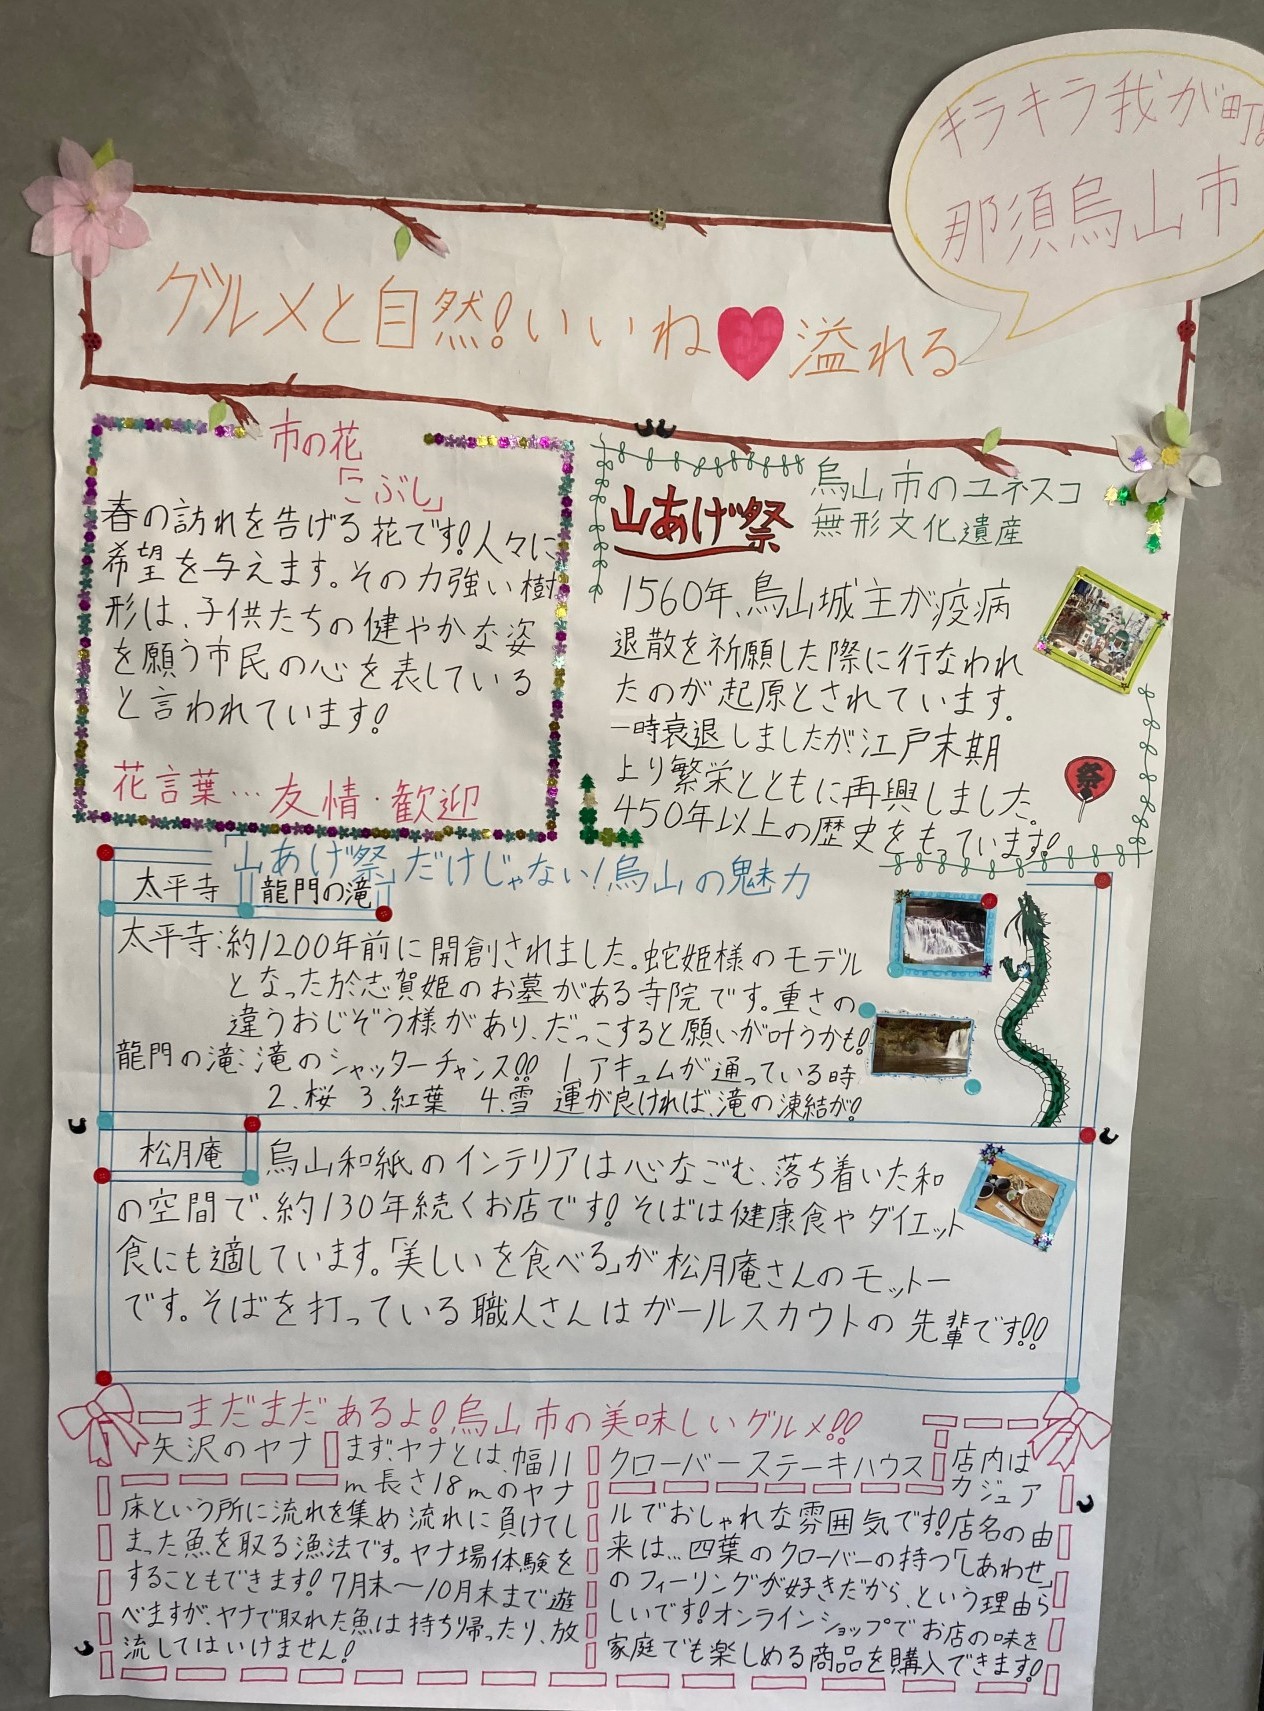 キラキラ我が町!
那須烏山市
グルメと自然!いいね♥溢れる
市の花
「こぶし」
春の訪れを告げる花です!人々に
希望を与えます。その力強い樹
形は、子供たちの健やかな姿
を願う市民の心を表している
と言われています!
花言葉…友情・歓迎
山あげ祭
烏山市のユネスコ
無形文化遺産
1560年、烏山城主が疫病
退散を祈願した際に行なわれ
たのが起原とされています。
一時衰退しましたが江戸末期
より繁栄とともに再興しました。
450年以上の歴史をもっています!
祭
「山あげ祭」だけじゃない!烏山の魅力
太平寺 龍門の滝
太平寺:約1200年前に開創されました。蛇姫様のモデル
となった於志賀姫のお墓がある寺院です。重さの
違うおじぞう様があり、だっこすると願いが叶うかも!
龍門の滝:滝のシャッターチャンス!! 1.アキュムが通っている時
2.桜 3.紅葉 4.雪 運が良ければ、滝の凍結が!
松月庵
烏山和紙のインテリアは心なごむ、落ち着いた和
の空間で、約130年続くお店です!そばは健康食やダイエット
食にも適しています。「美しいを食べる」が松月庵さんのモットー
です。そばを打っている職人さんはガールスカウトの先輩です!!
まだまだあるよ!烏山市の美味しいグルメ!!
矢沢のヤナ
まず、ヤナとは、幅11
m長さ18mのヤナ
床という所に流れを集め流れに負けてし
まった魚を取る漁法です。ヤナ場体験を
することもできます!7月末〜10月末まで遊
べますが、ヤナで取れた魚は持ち帰ったり、放
流してはいけません!
クローバーステーキハウス
店内は
カジュア
ルでおしゃれな雰囲気です!店名の由
来は…四葉のクローバーの持つ「しあわせ」
のフィーリングが好きだから、という理由ら
しいです!オンラインショップでお店の味を
家庭でも楽しめる商品を購入できます!